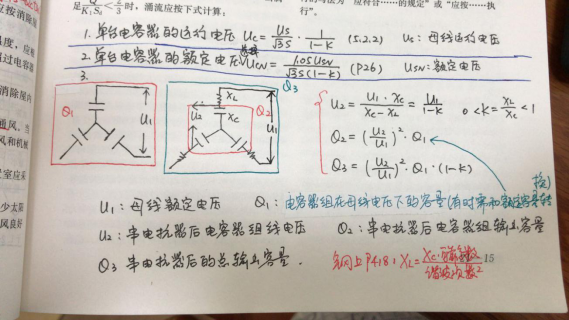 应按消除
足 K₁Sₛ < 2/3 时，涌流应按下式计算：
……的规定”或“应按……执
行”。
温度，应
通过电容器
1. 单台电容器的运行电压 Uc = Us/(√3S) · 1/(1-K) (5.2.2) Uc: 母线运行电压
2. 单台电容器的额定电压 UCN = 1.05USN/(√3S(1-K)) (P26) USN: 额定电压
3.
消除屋内
通风。当
风和机械
Q₁ U₁
U₂ XL XC Q₂ U₁ Q₃
U₂ = U₁·XC/(XC-XL) = U₁/(1-K) 0<K=XL/XC<1
Q₂ = (U₂/U₁)²·Q₁
Q₃ = (U₂/U₁)²·Q₁·(1-K)
U₁: 母线额定电压 Q₁: 电容器组在母线电压下的容量
U₂: 串电抗器后电容器组线电压 Q₂: 串电抗器后电容器组输出容量
Q₃ 串电抗器后的总输出容量.
钢上P418: XL = XC·可靠系数/谐波次数²
15
少太阳
风良好